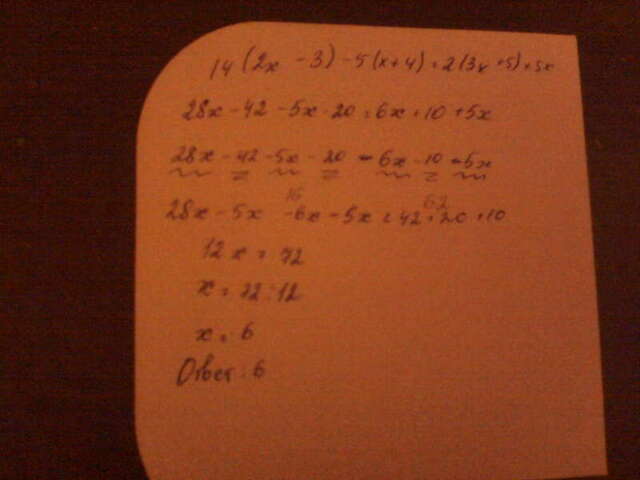 14 (2x - 3) - 5(x + 4) = 2(3x + 5) + 5x
28x - 42 - 5x - 20 = 6x + 10 + 5x
28x - 42 - 5x - 20 - 6x - 10 - 5x
16 62
28x - 5x - 6x - 5x = 42 + 20 + 10
12x = 72
x = 72 : 12
x = 6
Ответ: 6